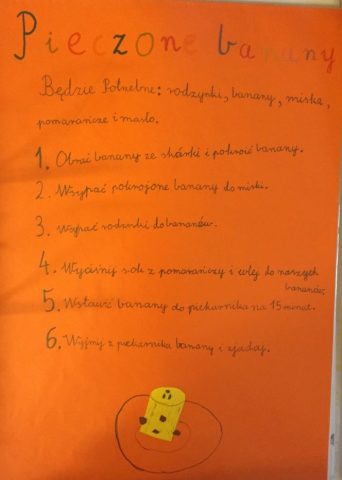 Pieczone banany
Będzie Potrzebne: rodzynki, banany, miska,
pomarańcze i masło.
1. Obrać banany ze skórki i pokroić banany.
2. Wsypać pokrojone banany do miski.
3. Wsypać rodzynki do bananów.
4. Wyciśnij sok z pomarańczy i wlej do naszych
bananów.
5. Wstawić banany do piekarnika na 15 minut.
6. Wyjmij z piekarnika banany i zjadaj.